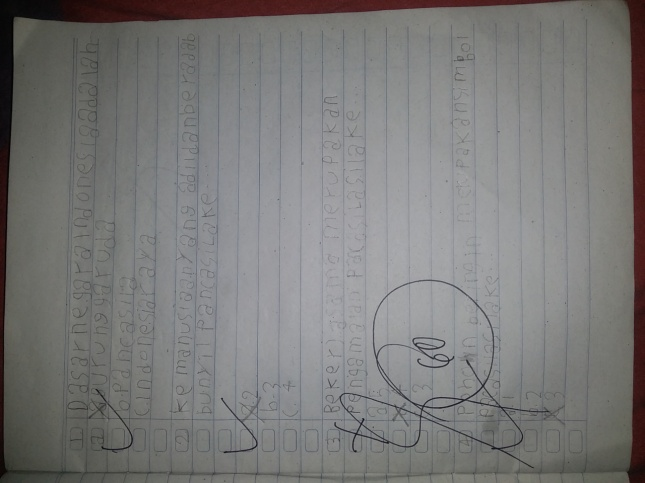 1) Dasar negara indonesia adalah
a. burung garuda
b. Pancasila
c. indonesia raya
2) kemanusiaan yang adil dan beradab
bunyi pancasila ke
a. 2
b. 3
c. 4
3. Bekerjasama merupakan
Pengamalan Pacasila ke
3
60
Pohon beringin merupakan simbol
ke
1
2
3